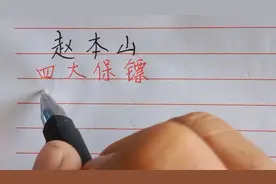 赵本山
四大保镖